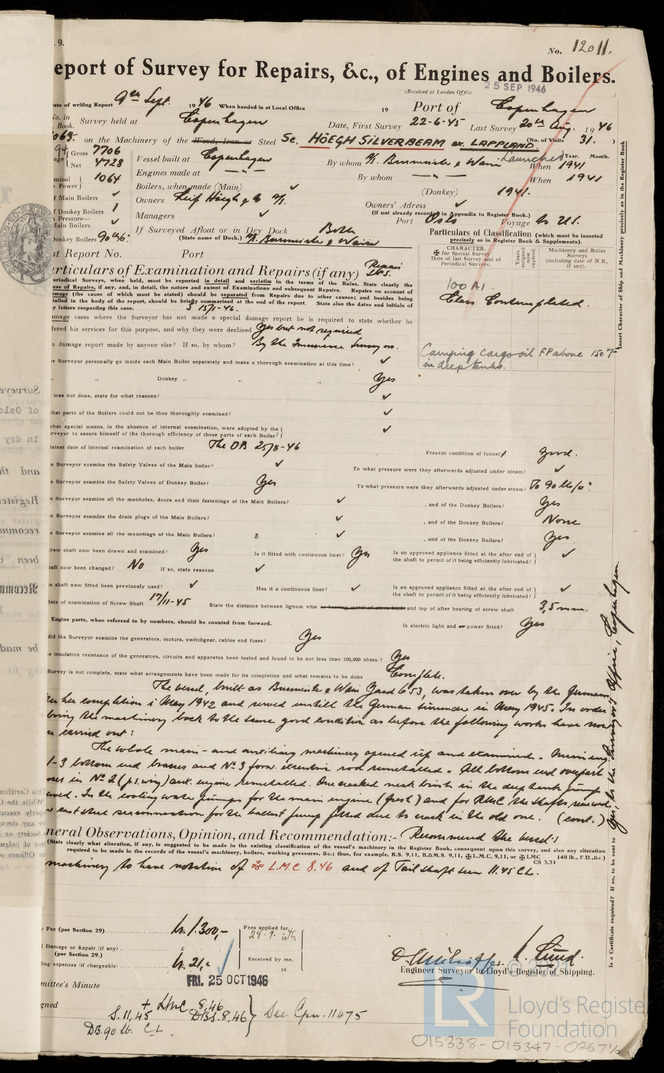 9.
No. 12011.
eport of Survey for Repairs, &c., of Engines and Boilers.
(Received at London Office 25 SEP 1946
ate of writing Report 9th Sept. 1946 When handed in at Local Office 19 Port of Copenhagen
No. in Survey held at Copenhagen Date, First Survey 22-6-45 Last Survey 20th Aug. 1946
Book. (No. of Visits 31.)
on the Machinery of the Steel Sc. HÖEGH SILVERBEAM ex. LAPPLAND
Gross 7706 Vessel built at Copenhagen By whom Burmeister & Wain Launched When 1941
Year. Month.
Net 4728 Engines made at — By whom — When 1941
minal 1064 Boilers, when made (Main) ✓ (Donkey) 1941.
Power
Main Boilers ✓ Owners Leif Höegh & Co Owners' Address ✓
(if not already recorded in Appendix to Register Book.)
Donkey Boilers 1 Managers ✓ Port Oslo Voyage to US.
Pressure—
Main Boilers ✓ If Surveyed Afloat or in Dry Dock Both
Donkey Boilers 90 lbs. (State name of Dock.) Burmeister & Wain
Particulars of Classification (which must be inserted
precisely as in Register Book & Supplements).
CHARACTER
for Special Survey
Date of last Survey and of
Periodical Survey
Machinery and Boiler
Surveys
(including date of N.B.,
if any).
100 A1
Class Contemplated.
Carrying Cargo oil F.P. above 150°F
in deep tanks.
Insert Character of Ship and Machinery precisely as in the Register Book
st Report No. Port
articulars of Examination and Repairs (if any) Repairs
eriodical Surveys, when held, must be reported in detail and seriatim in the terms of the Rules. State clearly the
use of Repairs, if any, and, in detail, the nature and extent of Examinations and subsequent Repairs. Repairs on account of
mage (the cause of which must be stated) should be separated from Repairs due to other causes; and besides being
tailed in the body of the report, should be briefly summarised at the end of the report. State also the dates and initials of
y letters respecting this case.
mage cases where the Surveyor has not made a special damage report he is required to state whether he
fered his services for this purpose, and why they were declined Yes but not required
a damage report made by anyone else? If so, by whom? By the Insurance Surveyor.
e Surveyor personally go inside each Main Boiler separately and make a thorough examination at this time? ✓
" Donkey " " " Yes
was not done, state for what reasons? ✓
hat parts of the Boilers could not be thus thoroughly examined? ✓
hat special means, in the absence of internal examination, were adopted by the
rveyor to assure himself of the thorough efficiency of those parts of each Boiler? ✓
latest date of internal examination of each boiler The DB 25/8-46 Present condition of funnel good.
e Surveyor examine the Safety Valves of the Main Boiler? ✓ To what pressure were they afterwards adjusted under steam? ✓
e Surveyor examine the Safety Valves of Donkey Boiler? Yes To what pressure were they afterwards adjusted under steam? To 90 lb/□"
e Surveyor examine all the manholes, doors and their fastenings of the Main Boilers? ✓ , and of the Donkey Boilers? Yes
e Surveyor examine the drain plugs of the Main Boilers? ✓ , and of the Donkey Boilers? None
e Surveyor examine all the mountings of the Main Boilers? ✓ , and of the Donkey Boilers? Yes
crew shaft now been drawn and examined? Yes Is it fitted with continuous liner? Yes Is an approved appliance fitted at the after end of
the shaft to permit of it being efficiently lubricated? ✓
aft now been changed? No If so, state reasons ✓
e shaft now fitted been previously used? ✓ Has it a continuous liner? ✓ Is an approved appliance fitted at the after end of
the shaft to permit of it being efficiently lubricated? ✓
date of examination of Screw Shaft 17/11-45 State the distance between lignum vitæ and top of after bearing of screw shaft 3,5 mm.
Engine parts, when referred to by numbers, should be counted from forward. Is electric light and power fitted? Yes
did the Surveyor examine the generators, motors, switchgear, cables and fuses? Yes
e insulation resistance of the generators, circuits and apparatus been tested and found to be not less than 100,000 ohms? Yes
Survey is not complete, state what arrangements have been made for its completion and what remains to be done Complete.
The vessel, built as Burmeister & Wain Yard No 653, was taken over by the Germans
her completion i May 1942 and served untill the German surrender in May 1945. In order
bring the machinery back to the same good condition as before the following works have now
n carried out:
The whole main- and auxiliary machinery opened up and examined.
1-3 bottom end brasses and No 3 forw. excentric rod remetalled. All bottom end
in No 2 (ps. wing) aux. engine remetalled. One cracked neck brush in the deep tank pump
In the cooling water pumps for the main engine (fresh) and for the shafts renewed.
for the ballast pump fitted due to crack in the old one. (cont.)
neral Observations, Opinion, and Recommendation:— Recommend the vessel's
(State clearly what alteration, if any, is suggested to be made in the existing classification of the vessel's machinery in the Register Book, consequent upon this survey, and also any alteration
required to be made in the records of the vessel's machinery, boilers, working pressures, &c.; thus, for example, B.S. 9,11, B.&M.S. 9,11, LMC 9,11, or LMC 140 lb., F.D., &c.)
CS 3,34
machinery to have notation of L.M.C 8.46 and of Tail shaft seen 11.45 CL.
Is a Certificate required? If so, to be sent to Yes, to the Surveyors Office, Copenhagen
Fee (per Section 29) kr. 1.300,- Fees applied for,
24-9. 1946
l Damage or Repair (if any)
(per Section 29.)
£
Received by me,
19
ling expenses (if chargeable) kr. 21,-
Engineer Surveyor to Lloyd's Register of Shipping.
FRI. 25 OCT 1946
mmittee's Minute
gned + LMC 8,46
S.11,45 DBS.8,46 } See Cpn. 11475
DB 90 lb. CL.
© 2021
LR
Lloyd's Register
Foundation
015338-015347-0267½